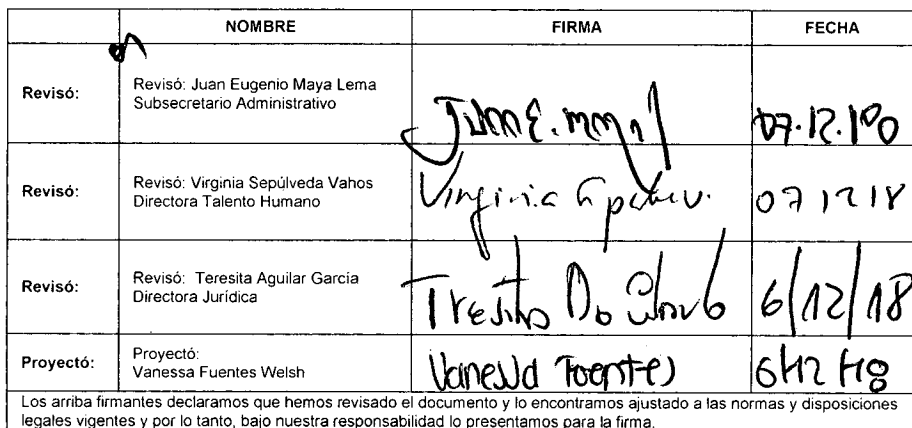 NOMBRE FIRMA FECHA
Revisó: Revisó: Juan Eugenio Maya Lema
Subsecretario Administrativo
07.12.18
Revisó: Revisó: Virginia Sepúlveda Vahos
Directora Talento Humano
Virginia 07 12 18
Revisó: Revisó: Teresita Aguilar García
Directora Jurídica
6/12/18
Proyectó: Proyectó:
Vanessa Fuentes Welsh
Vanessa Fuentes 6/12/18
Los arriba firmantes declaramos que hemos revisado el documento y lo encontramos ajustado a las normas y disposiciones
legales vigentes y por lo tanto, bajo nuestra responsabilidad lo presentamos para la firma.